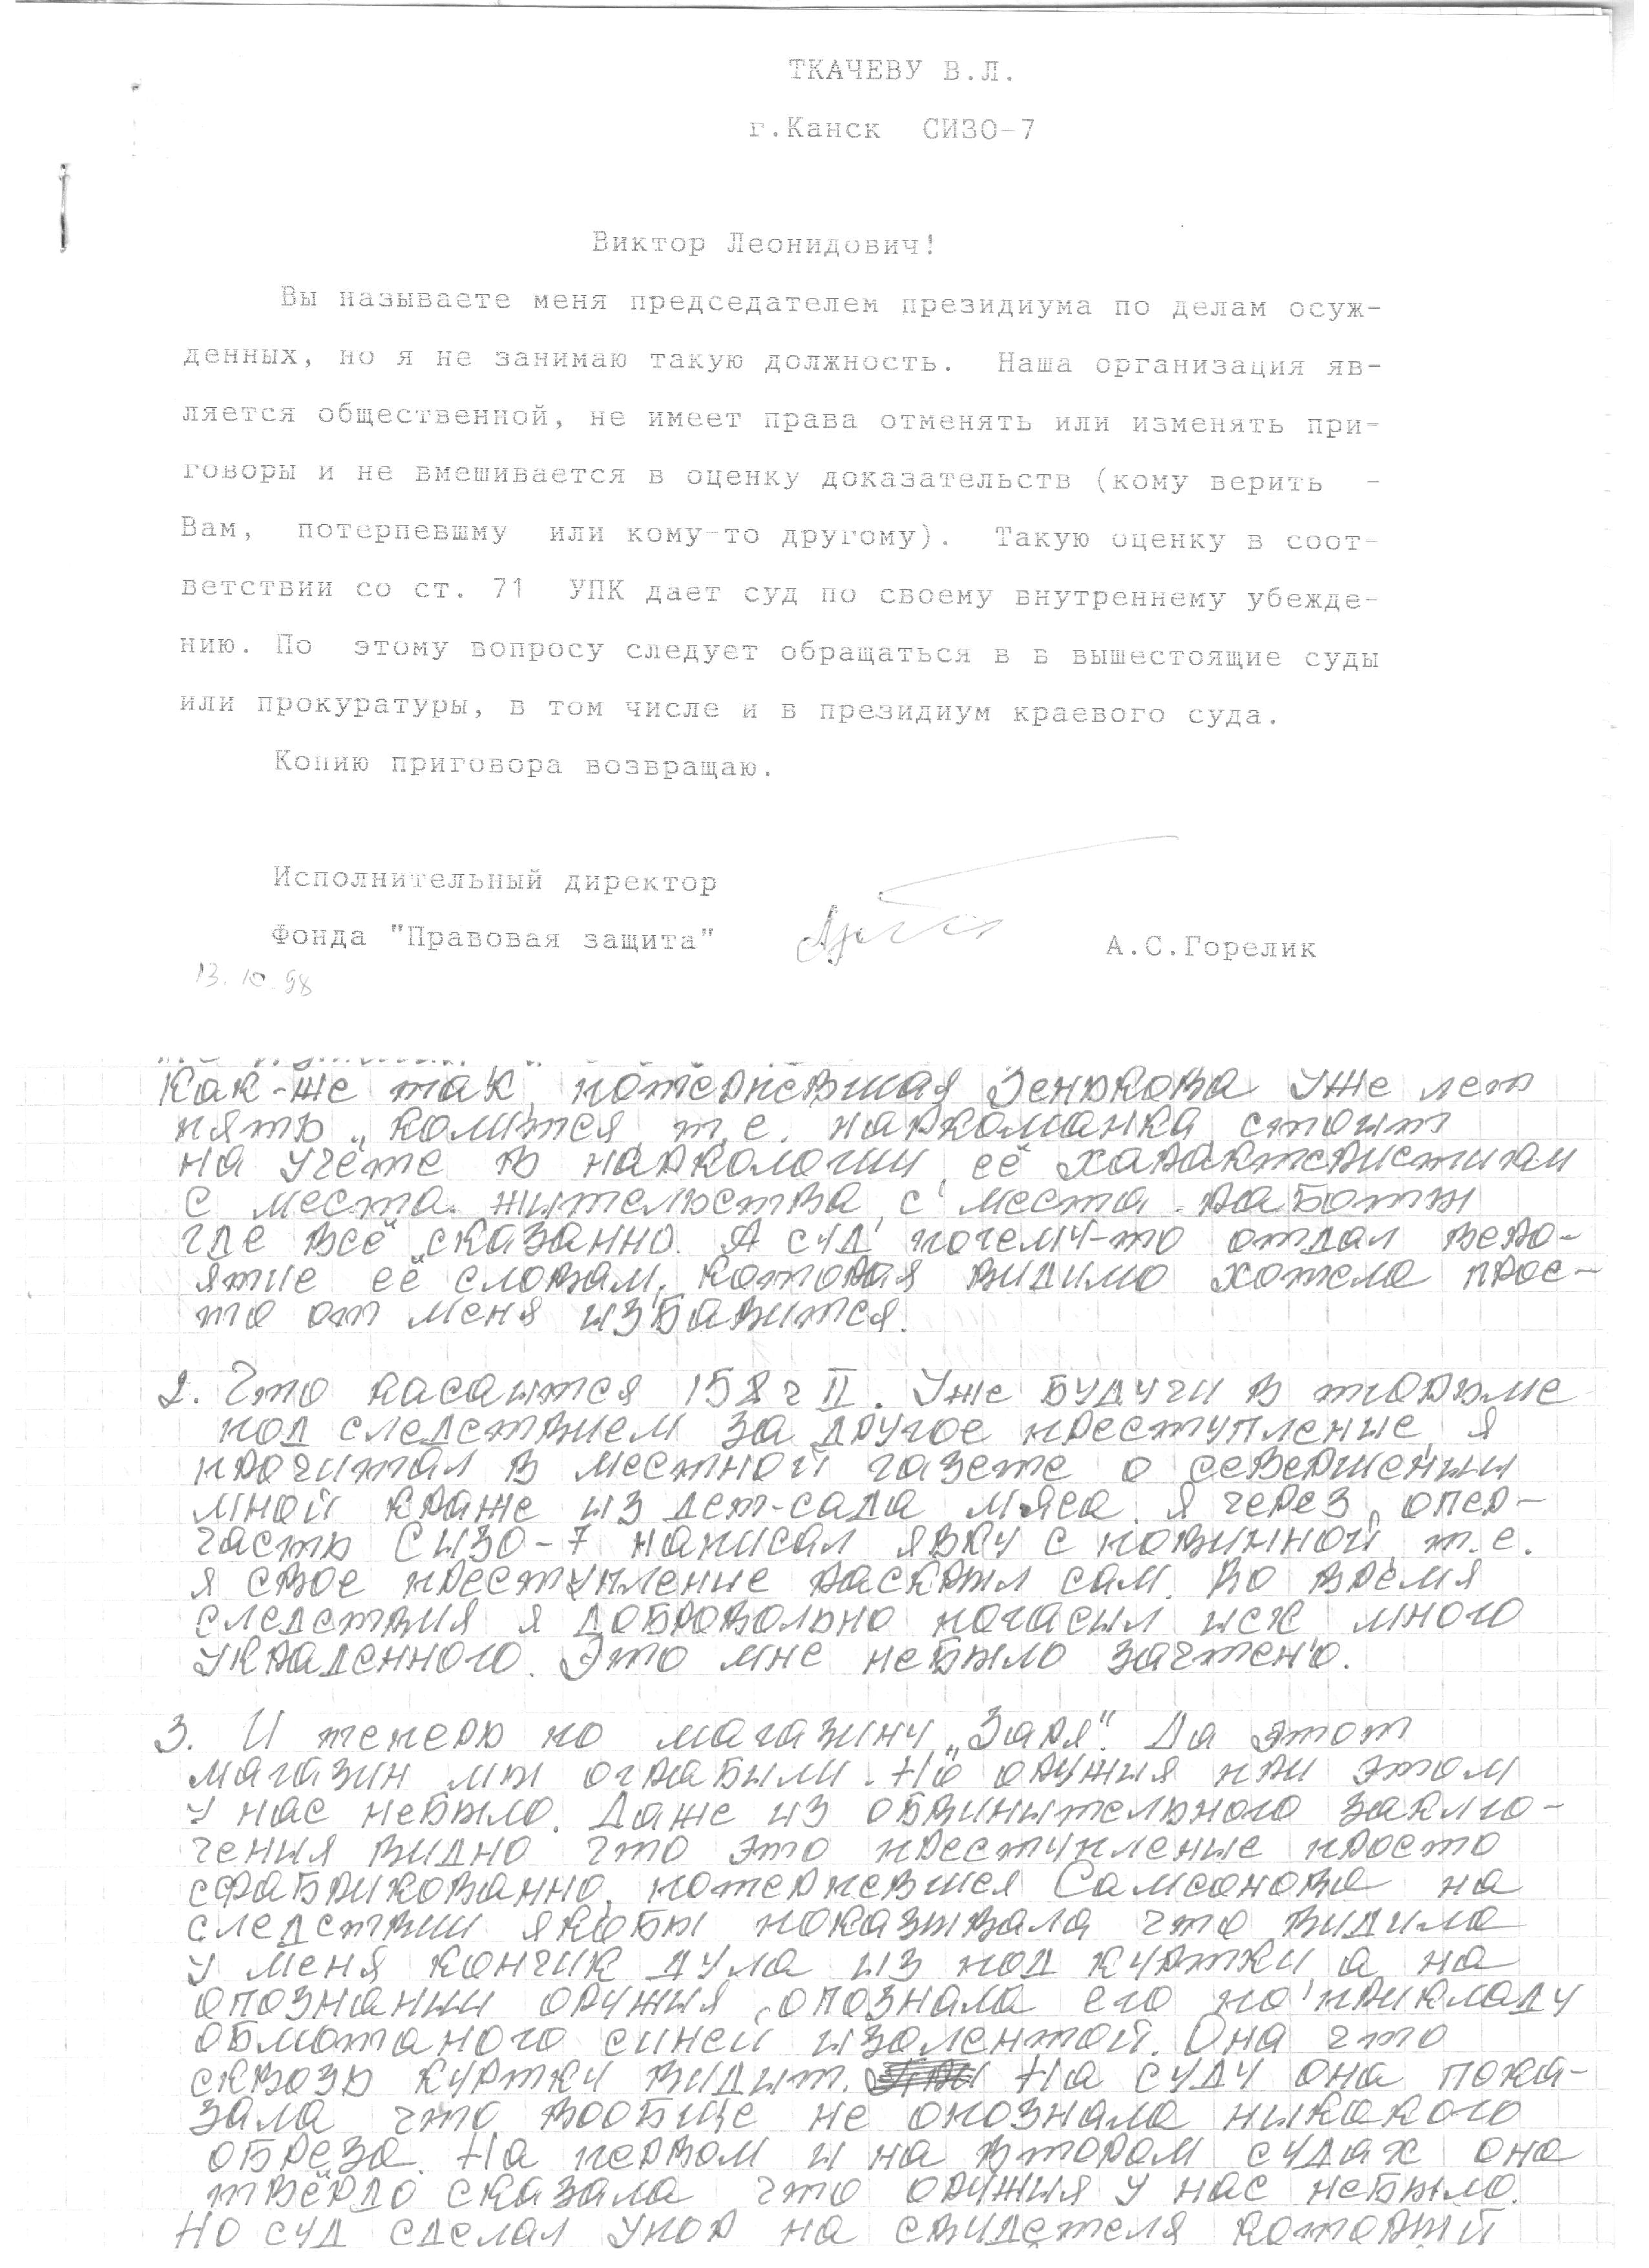 ТКАЧЕВУ В.Л.
г.Канск СИЗО-7
Виктор Леонидович!
Вы называете меня председателем президиума по делам осуж-
денных, но я не занимаю такую должность. Наша организация яв-
ляется общественной, не имеет права отменять или изменять при-
говоры и не вмешивается в оценку доказательств (кому верить -
Вам, потерпевшму или кому-то другому). Такую оценку в соот-
ветствии со ст. 71 УПК дает суд по своему внутреннему убежде-
нию. По этому вопросу следует обращаться в в вышестоящие суды
или прокуратуры, в том числе и в президиум краевого суда.
Копию приговора возвращаю.
Исполнительный директор
Фонда "Правовая защита" А.С.Горелик
13.10.98
Как-же так, потерпевшая Зенркова уже лет
пять „колится" т.е. наркоманка стоит
на учёте в наркологии, её характеристики
с места жительства, с места работы
где всё сказанно. А суд почему-то отдал веро-
ятие её словам, которая видимо хотела прос-
то от меня избавится.
2. Что касаится 158 ч II. Уже будучи в тюрьме
под следствием за другое преступление, я
прочитал в местной газете о совершеный
мной краже из дет-сада мяса. Я через „опер-
часть СИЗО-7 написал явку с повинной, т.е.
я свое преступление раскрыл сам. Во время
следствия я добровольно погасил иск много
украденного. Это мне небыло зачтено.
3. И теперь по магазину „Заря". Да этот
магазин мы ограбили. Но оружия при этом
у нас небыло. Даже из обвинительного заклю-
чения видно что это преступление просто
сфабрикованно, потерпевшея Самсонова на
следствии якобы показывала что видила
у меня кончик дула из под куртки а на
опознании оружия, опознала его по прикладу
обмотаного синей изолентой. Она что
сквозь куртку видит. На суду она пока-
зала что вообще не опознала никакого
обреза. На первом и на втором судах она
твёрдо сказала что оружия у нас небыло.
Но суд сделал упор на свидетеля который